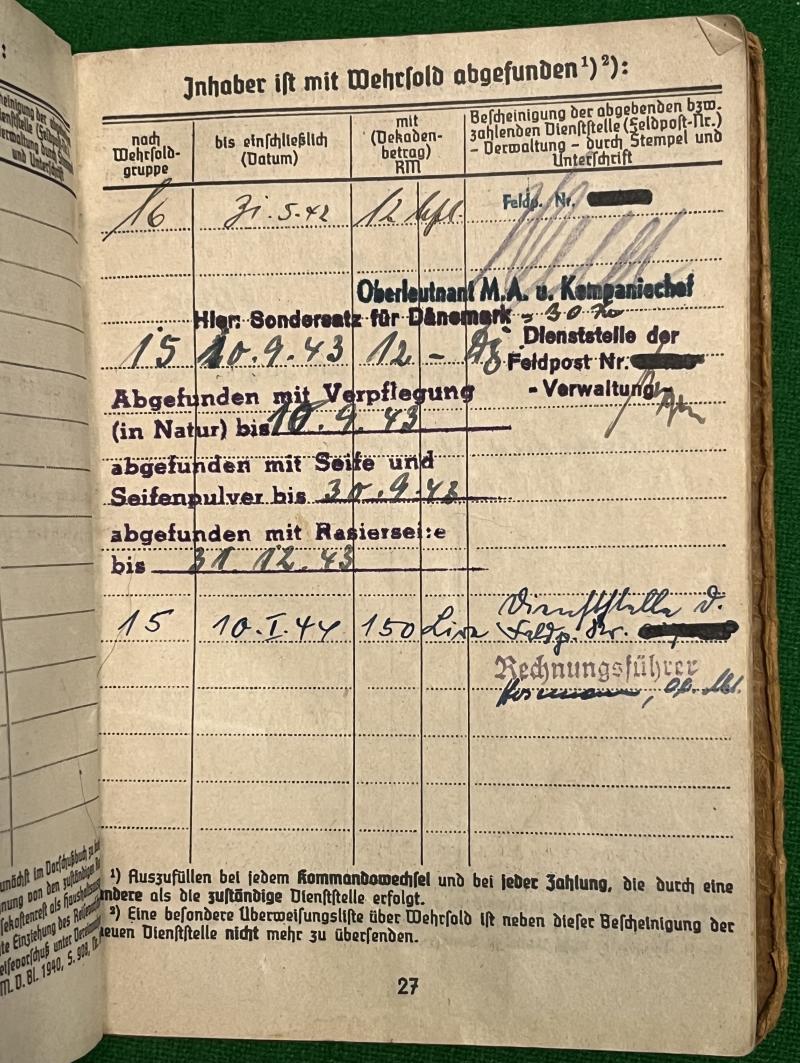 Inhaber ist mit Wehrsold abgefunden¹)²):
nach Wehrsold-
gruppe
bis einschließlich
(Datum)
mit
(Dekaden-
betrag)
RM
Bescheinigung der abgebenden bzw.
zahlenden Dienststelle (Feldpost-Nr.)
- Verwaltung - durch Stempel und
Unterschrift
16 31.5.42 12 Feldp. Nr.
Oberleutnant M.A. u. Kompaniechef
Hier: Sondersatz für Dänemark - 30
15 10.9.43 12 -
Dienststelle der
Feldpost Nr.
- Verwaltung
Abgefunden mit Verpflegung
(in Natur) bis 10.9.43
abgefunden mit Seife und
Seifenpulver bis 30.9.43
abgefunden mit Rasierseife
bis 31.12.43
15 10.I.44 150 Lire
Dienststelle d.
Feldp. Nr.
Rechnungsführer
¹) Auszufüllen bei jedem Kommandowechsel und bei jeder Zahlung, die durch eine
andere als die zuständige Dienststelle erfolgt.
²) Eine besondere Überweisungsliste über Wehrsold ist neben dieser Bescheinigung der
neuen Dienststelle nicht mehr zu übersenden.
27
M. D. Bl. 1940, S. 908,